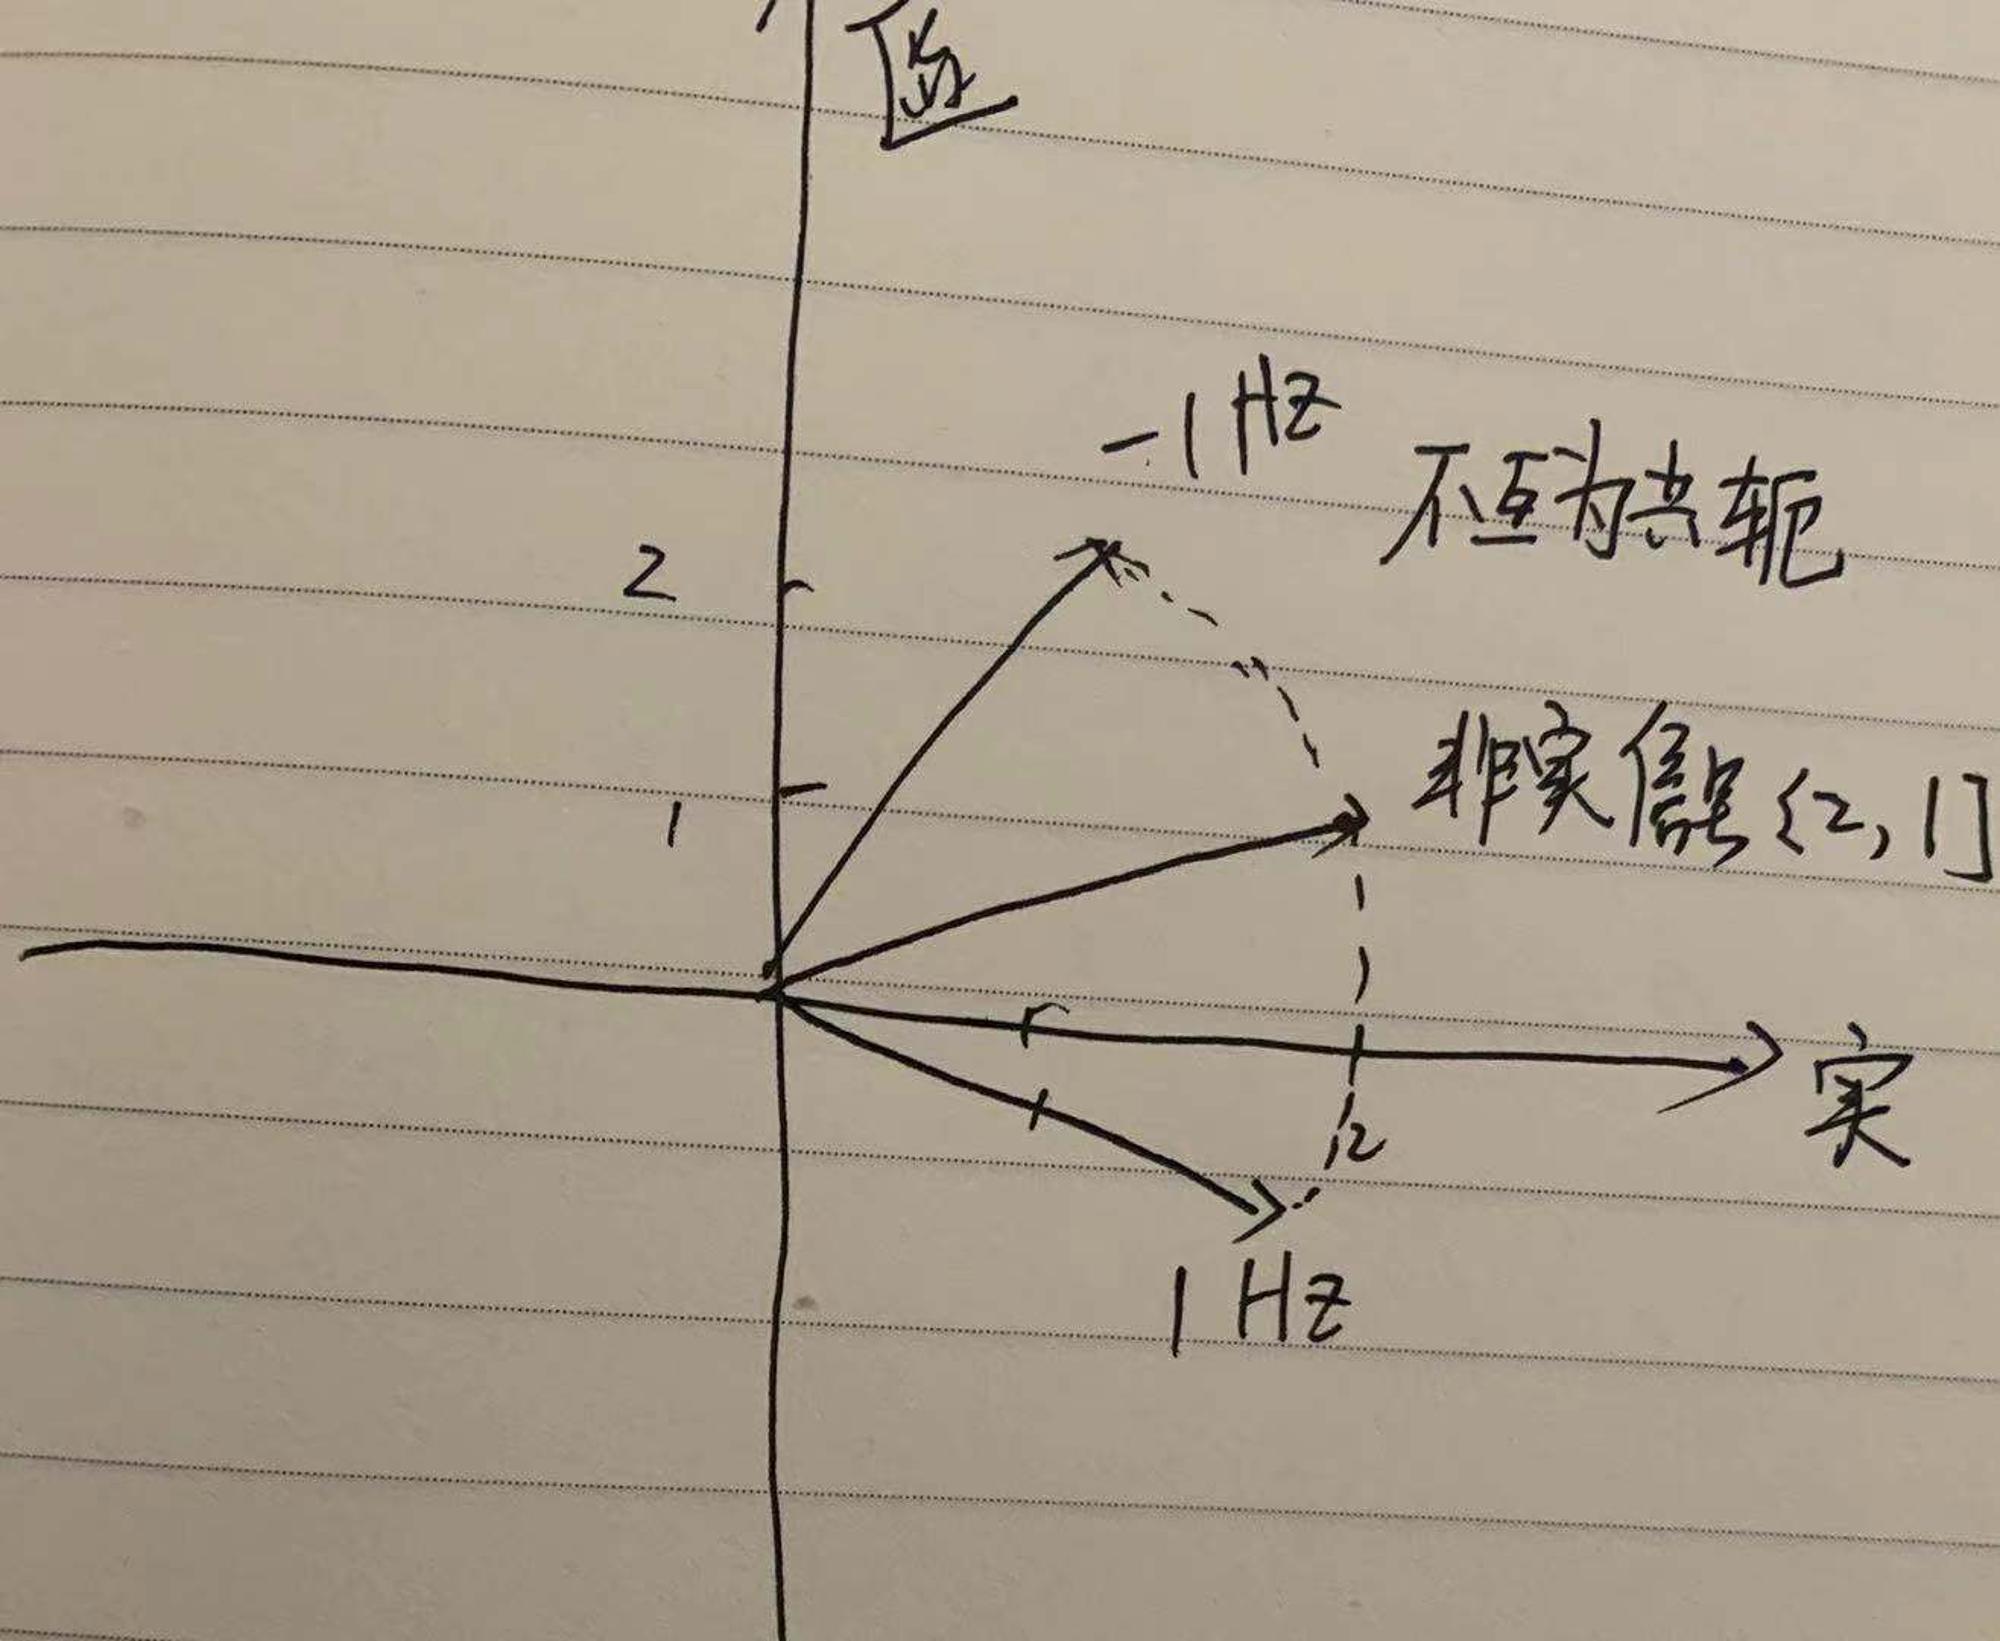 虚
-1 Hz
不互为共轭
2
1
非实信号 [2, 1]
实
2
1 Hz